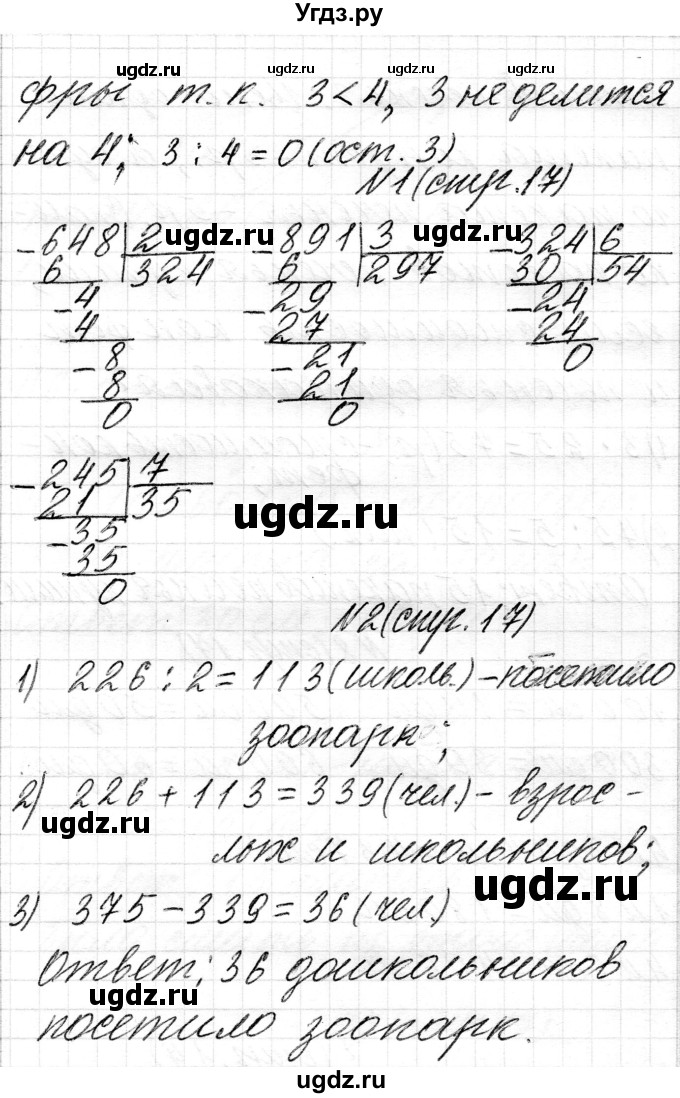 Угдз.ру
фры т. к. 3 < 4, 3 не делится
на 4; 3 : 4 = 0 (ост. 3)
N1 (стр. 17)
- 648 | 2   - 891 | 3   - 324 | 6
6 324   6 297   30 54
- 4   - 29   - 24
4   27   24
- 8   - 21   0
8   21
0   0
- 245 | 7
21 35
- 35
35
0
N2 (стр. 17)
1) 226 : 2 = 113 (школь.) - посетило
зоопарк;
2) 226 + 113 = 339 (чел.) - взрос-
лых и школьников;
3) 375 - 339 = 36 (чел.)
Ответ: 36 дошкольников
посетило зоопарк.
ugdz.ru
ugdz.ru
ugdz.ru
ugdz.ru
ugdz.ru
ugdz.ru
ugdz.ru
ugdz.ru
ugdz.ru
ugdz.ru
ugdz.ru